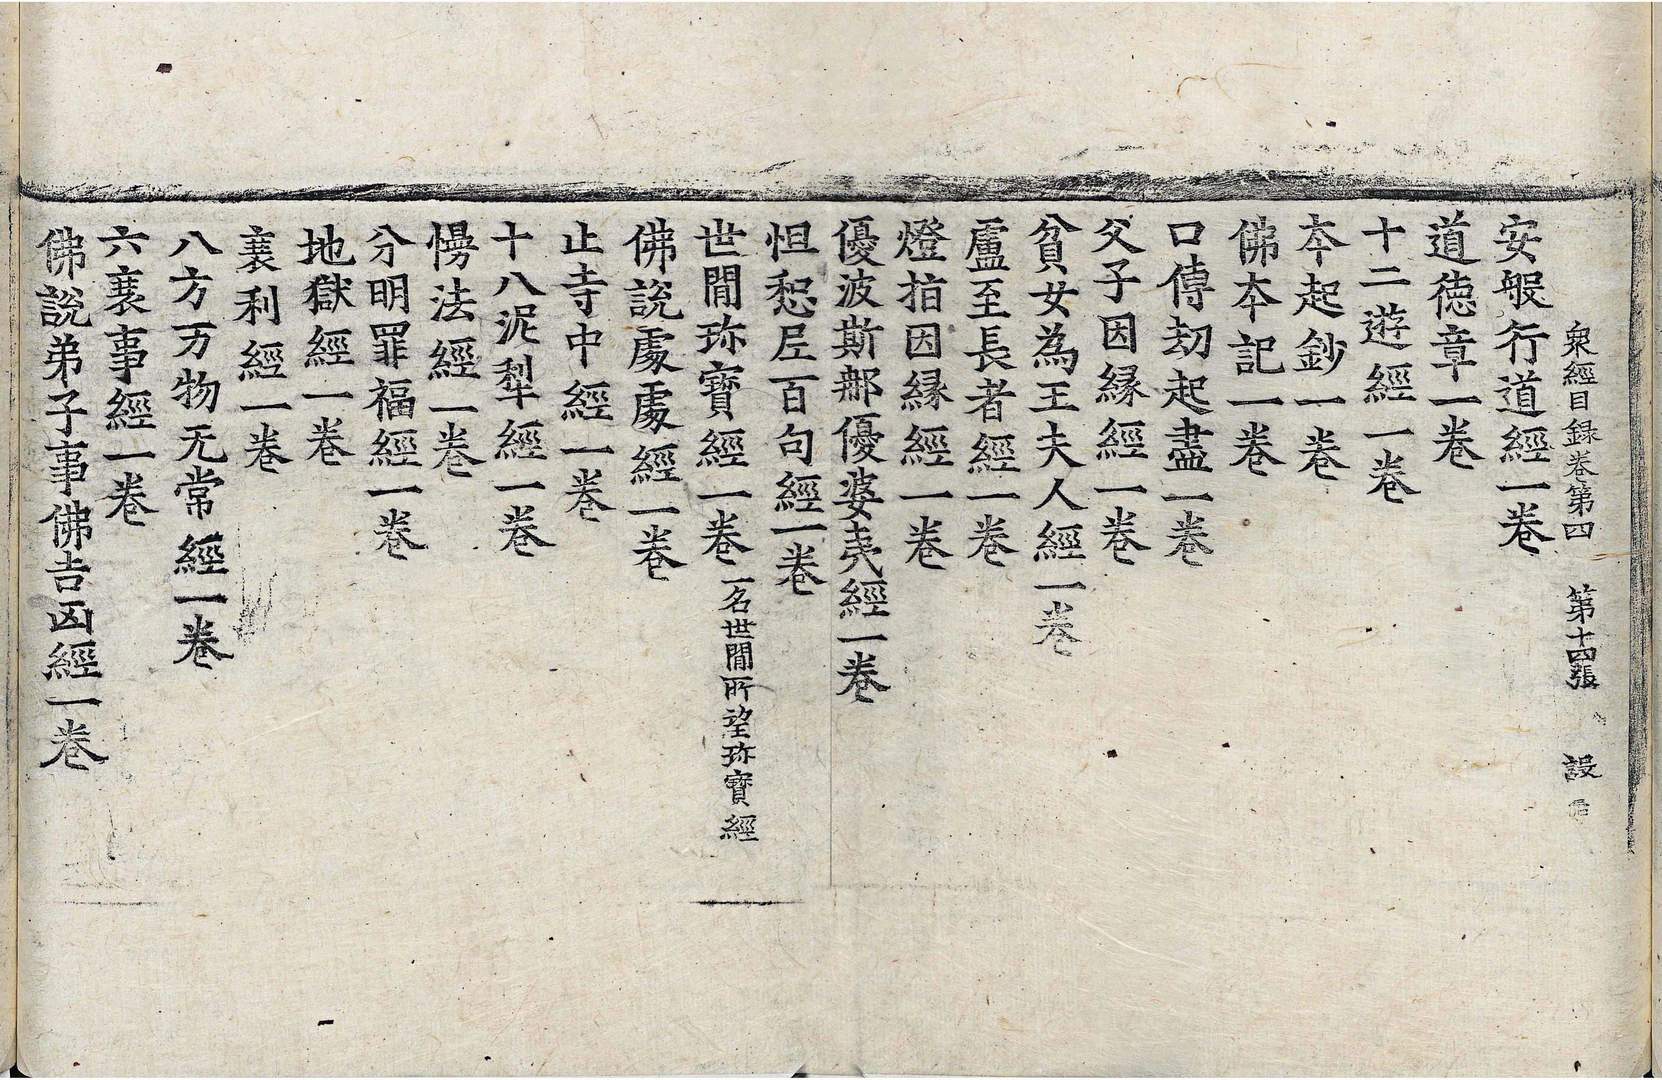 衆經目録卷第四 第十四張 設
安般行道經一卷
道德章一卷
十二遊經一卷
夲起鈔一卷
佛夲記一卷
口傳劫起盡一卷
父子因縁經一卷
貧女為王夫人經一卷
盧至長者經一卷
燈指因縁經一卷
優波斯那優婆夷經一卷
怛惒尼百句經一卷
世閒珎寶經一卷 一名世閒所望珎寶經
佛說處處經一卷
止寺中經一卷
十八泥犁經一卷
慢法經一卷
分明罪福經一卷
地獄經一卷
襄利經一卷
八方万物无常經一卷
六襄事經一卷
佛說弟子事佛吉凶經一卷